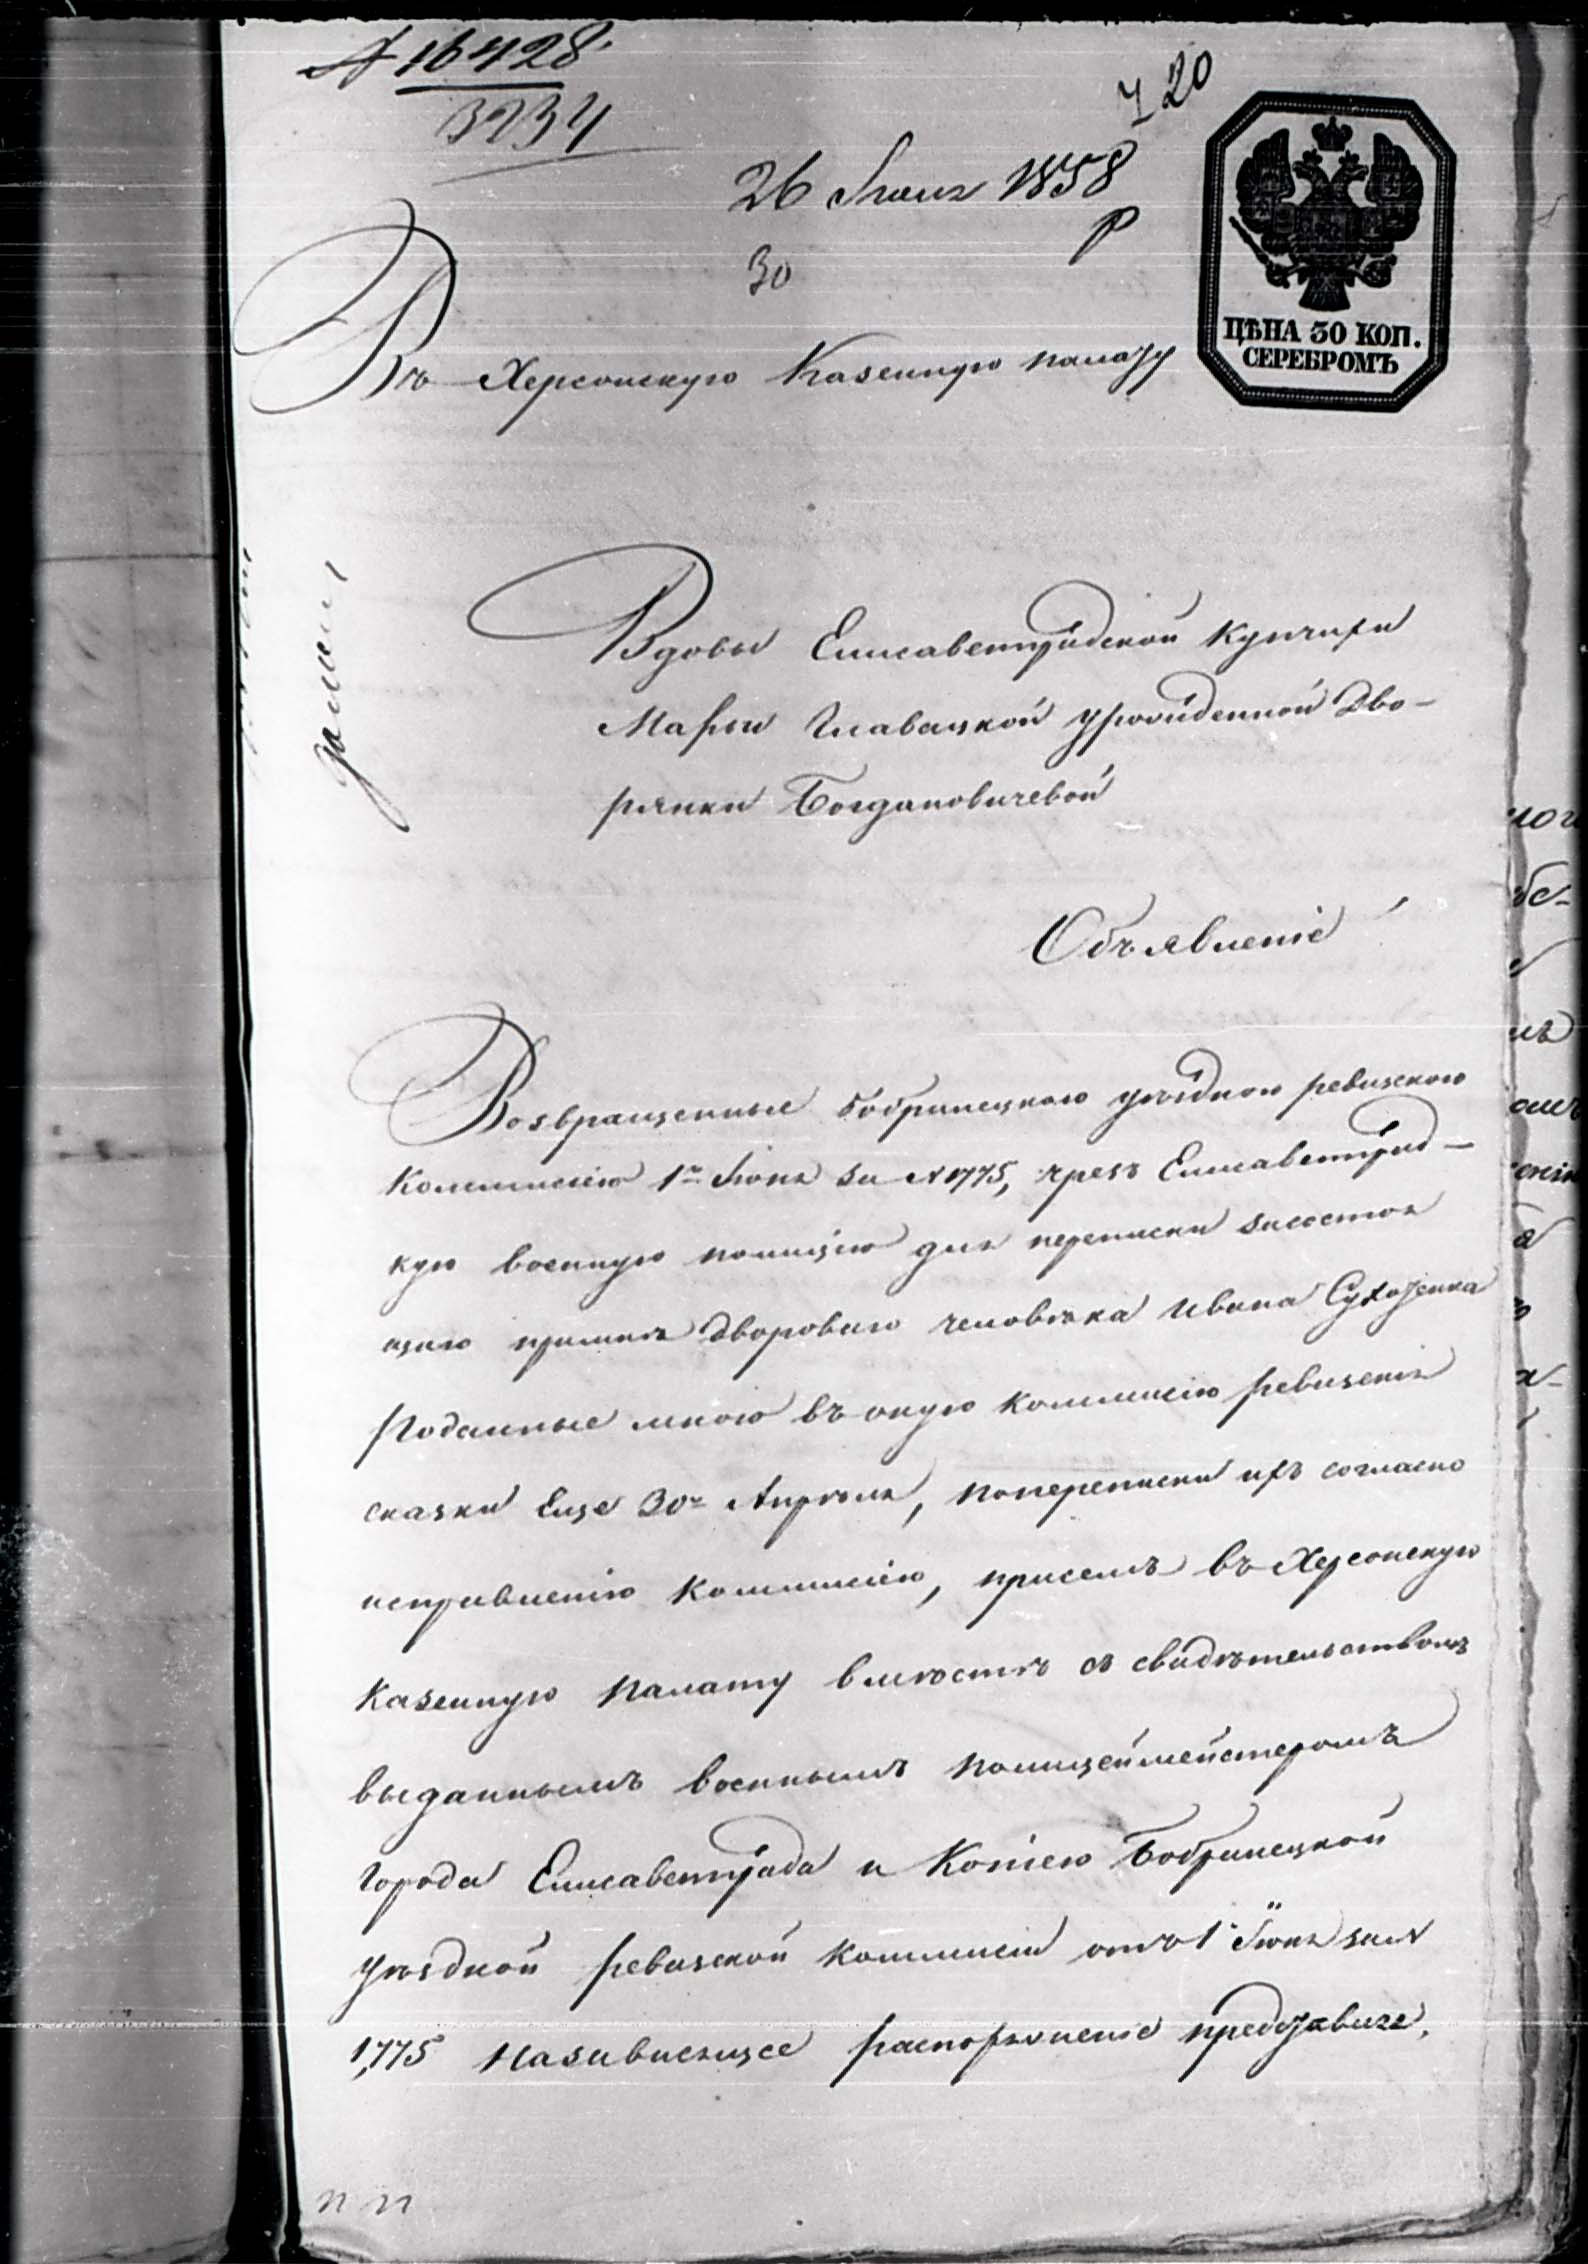 № 16428
3734
720
26 Іюня 1858
30
ЦѢНА 30 КОП.
СЕРЕБРОМЪ
Въ Херсонскую Казенную палату
Вдовы Елисаветградской Купчихи
Марьи Главацкой урожденной Дво-
рянки Богдановичевой
Объявленіе
Возвращенные бобринецкою уѣздною ревизскою
Коммисіею 1го Іюня за № 1775, чрезъ Елисаветград-
кую военную полицію для переписки засостоя
щаго прими двороваго человѣка Ивана
Поданные мною въ оную коммисію ревизскія
сказки Еще 30го Апрѣля, попереписки ихъ согласно
исправленію Коммисіею, присемъ въ Херсонскую
Казенную Палату вместѣ съ свидѣтельствомъ
выданнымъ военнымъ полицеймейстеромъ
города Елисаветграда и Копіею Бобринецкой
уѣздной ревизской Коммисіи отъ 1 Іюня за №
1,775 Назависящее распоряженіе представить.